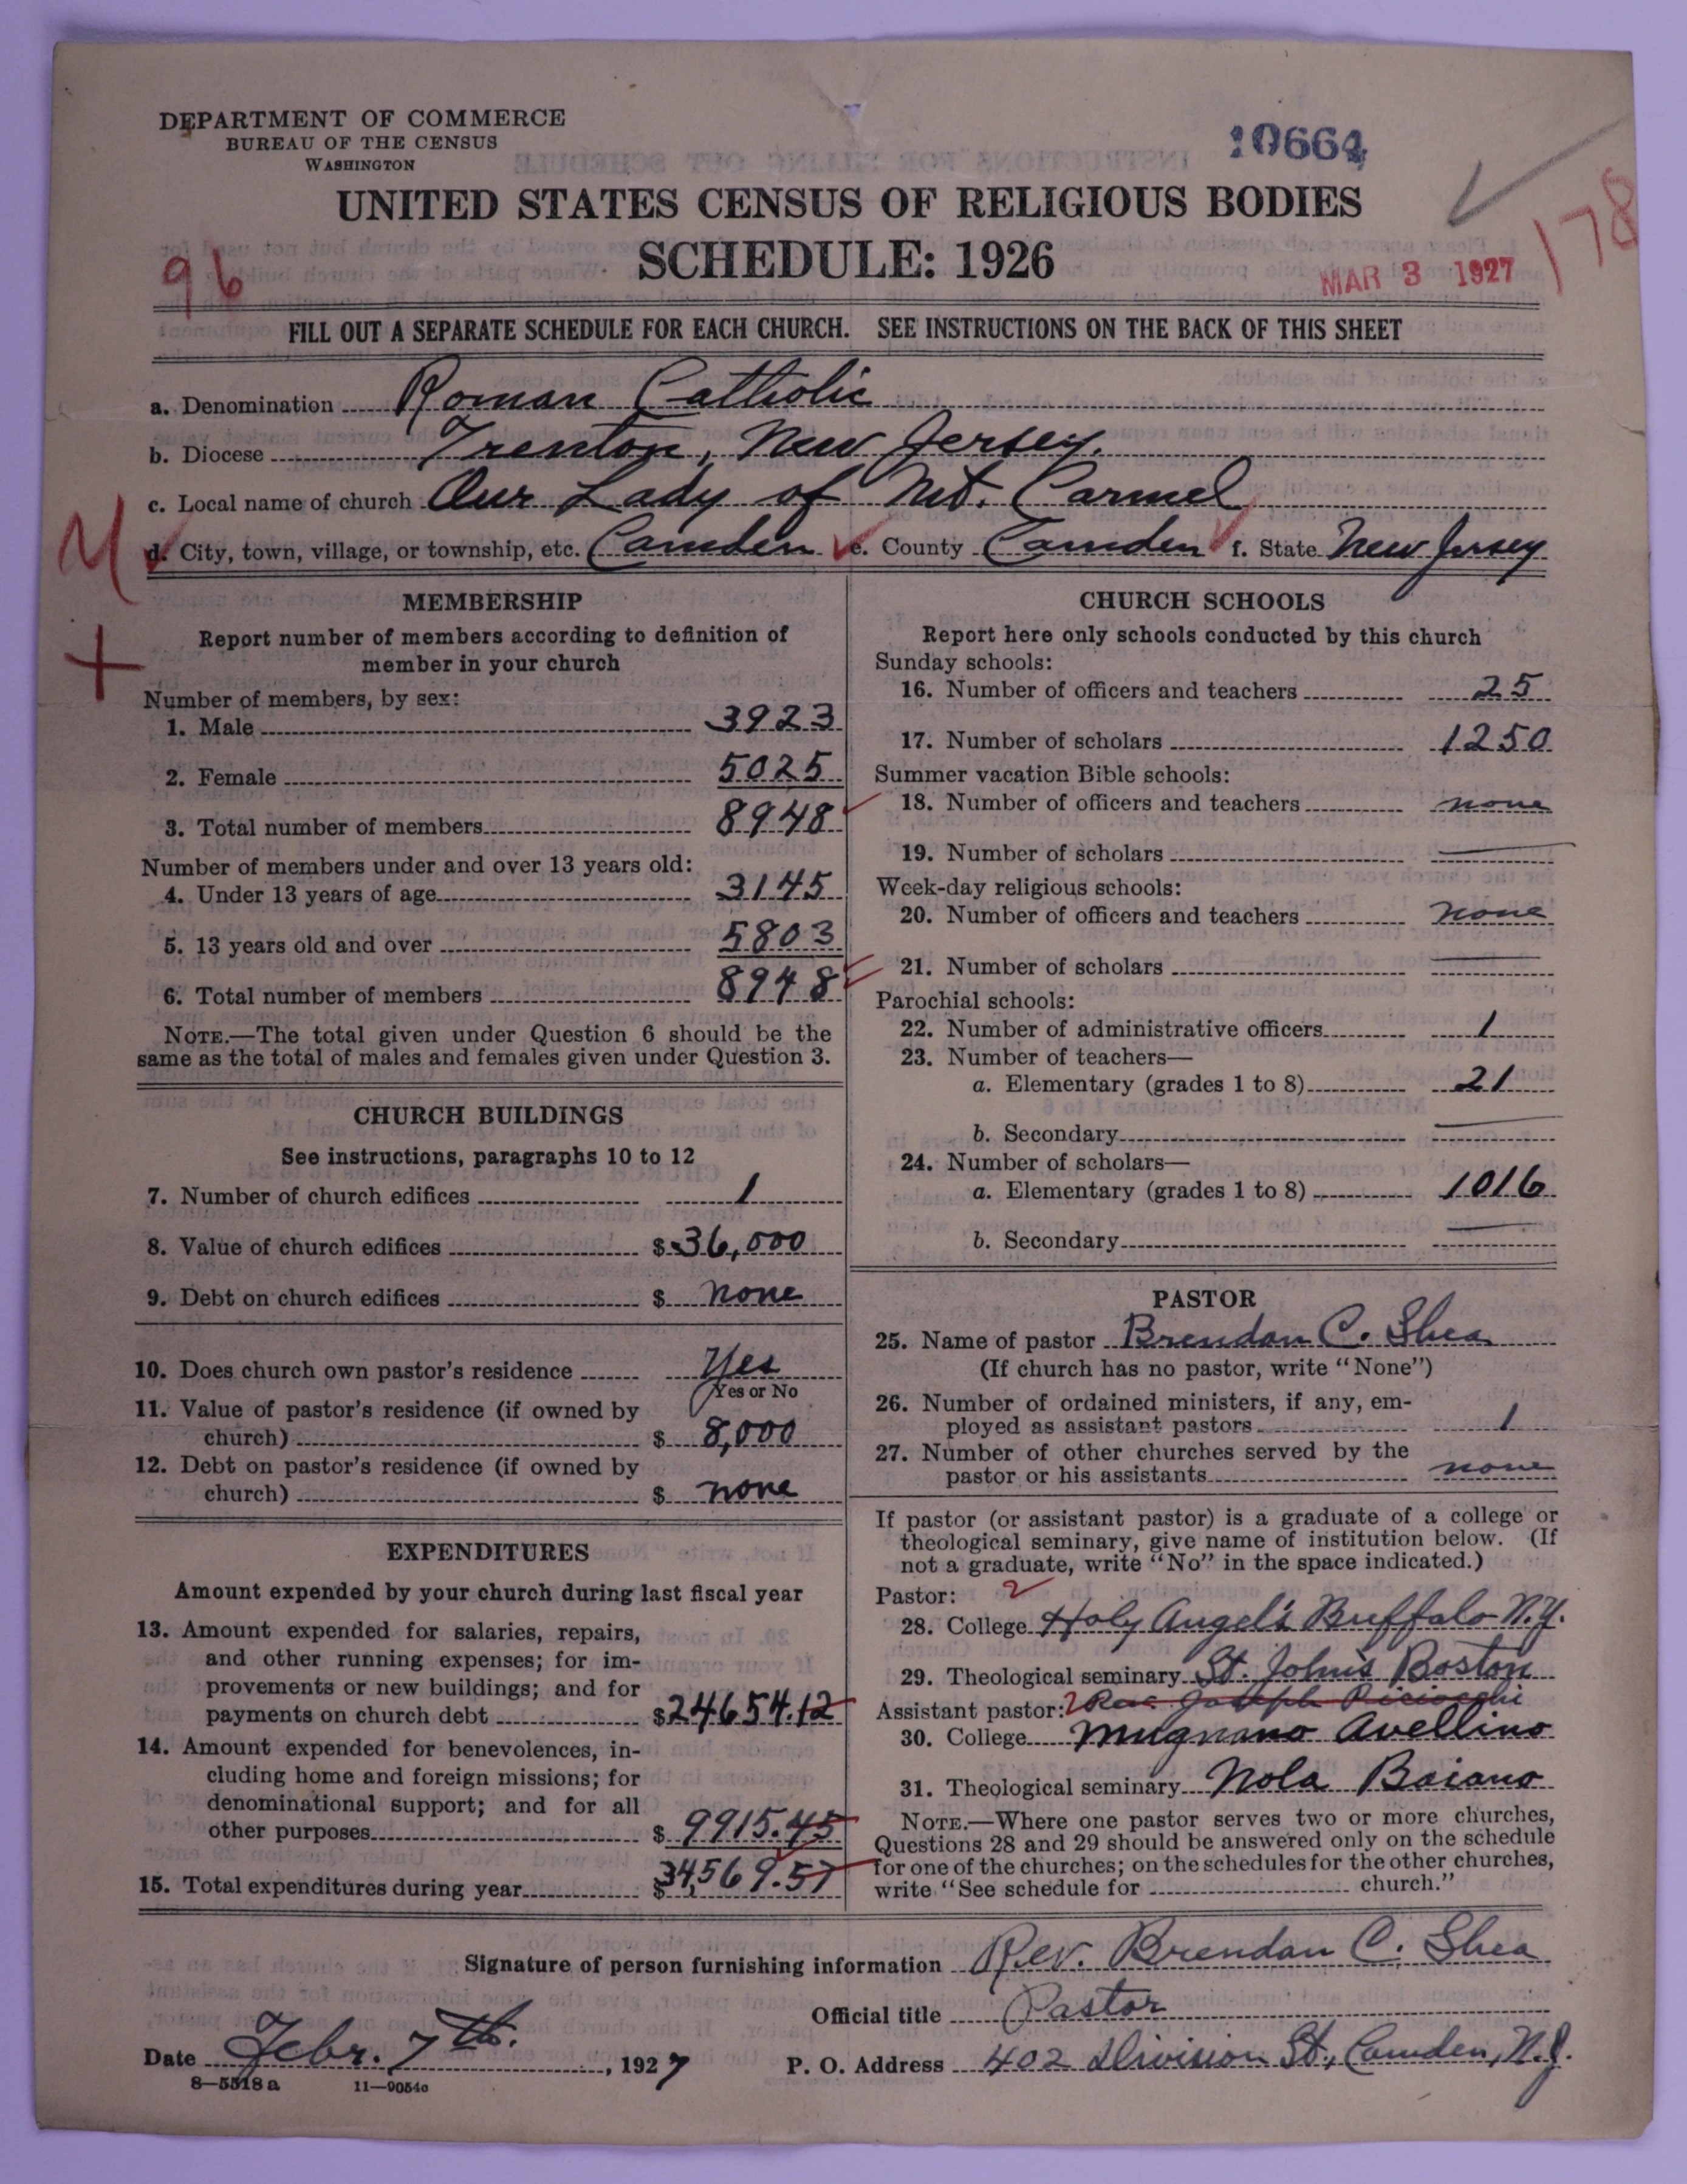 DEPARTMENT OF COMMERCE
BUREAU OF THE CENSUS
WASHINGTON
10664
UNITED STATES CENSUS OF RELIGIOUS BODIES
SCHEDULE: 1926
96
MAR 3 1927
178
FILL OUT A SEPARATE SCHEDULE FOR EACH CHURCH. SEE INSTRUCTIONS ON THE BACK OF THIS SHEET
a. Denomination Roman Catholic
b. Diocese Trenton, New Jersey.
c. Local name of church Our Lady of Mt. Carmel
d. City, town, village, or township, etc. Camden e. County Camden f. State New Jersey
MEMBERSHIP
Report number of members according to definition of
member in your church
Number of members, by sex:
1. Male 3923
2. Female 5025
3. Total number of members 8948
Number of members under and over 13 years old:
4. Under 13 years of age 3145
5. 13 years old and over 5803
6. Total number of members 8948
NOTE.—The total given under Question 6 should be the
same as the total of males and females given under Question 3.
CHURCH BUILDINGS
See instructions, paragraphs 10 to 12
7. Number of church edifices 1
8. Value of church edifices $36,000
9. Debt on church edifices $ none
10. Does church own pastor's residence Yes
Yes or No
11. Value of pastor's residence (if owned by
church) $ 8,000
12. Debt on pastor's residence (if owned by
church) $ none
EXPENDITURES
Amount expended by your church during last fiscal year
13. Amount expended for salaries, repairs,
and other running expenses; for im-
provements or new buildings; and for
payments on church debt $24654.12
14. Amount expended for benevolences, in-
cluding home and foreign missions; for
denominational support; and for all
other purposes $ 9915.45
15. Total expenditures during year $34,569.57
CHURCH SCHOOLS
Report here only schools conducted by this church
Sunday schools:
16. Number of officers and teachers 25
17. Number of scholars 1250
Summer vacation Bible schools:
18. Number of officers and teachers none
19. Number of scholars
Week-day religious schools:
20. Number of officers and teachers none
21. Number of scholars
Parochial schools:
22. Number of administrative officers 1
23. Number of teachers—
a. Elementary (grades 1 to 8) 21
b. Secondary
24. Number of scholars—
a. Elementary (grades 1 to 8) 1016
b. Secondary
PASTOR
25. Name of pastor Brendan C. Shea
(If church has no pastor, write "None")
26. Number of ordained ministers, if any, em-
ployed as assistant pastors 1
27. Number of other churches served by the
pastor or his assistants none
If pastor (or assistant pastor) is a graduate of a college or
theological seminary, give name of institution below. (If
not a graduate, write "No" in the space indicated.)
Pastor: 2
28. College Holy Angel's Buffalo N.Y.
29. Theological seminary St. John's Boston
Assistant pastor: 2 Rev Joseph
30. College Mugnano Avellino
31. Theological seminary Nola Baiano
NOTE.—Where one pastor serves two or more churches,
Questions 28 and 29 should be answered only on the schedule
for one of the churches; on the schedules for the other churches,
write "See schedule for church."
Signature of person furnishing information Rev. Brendan C. Shea
Official title Pastor
Date Febr. 7th., 1927 P. O. Address 402 Division St., Camden, N.J.
8—5518 a 11—9054c